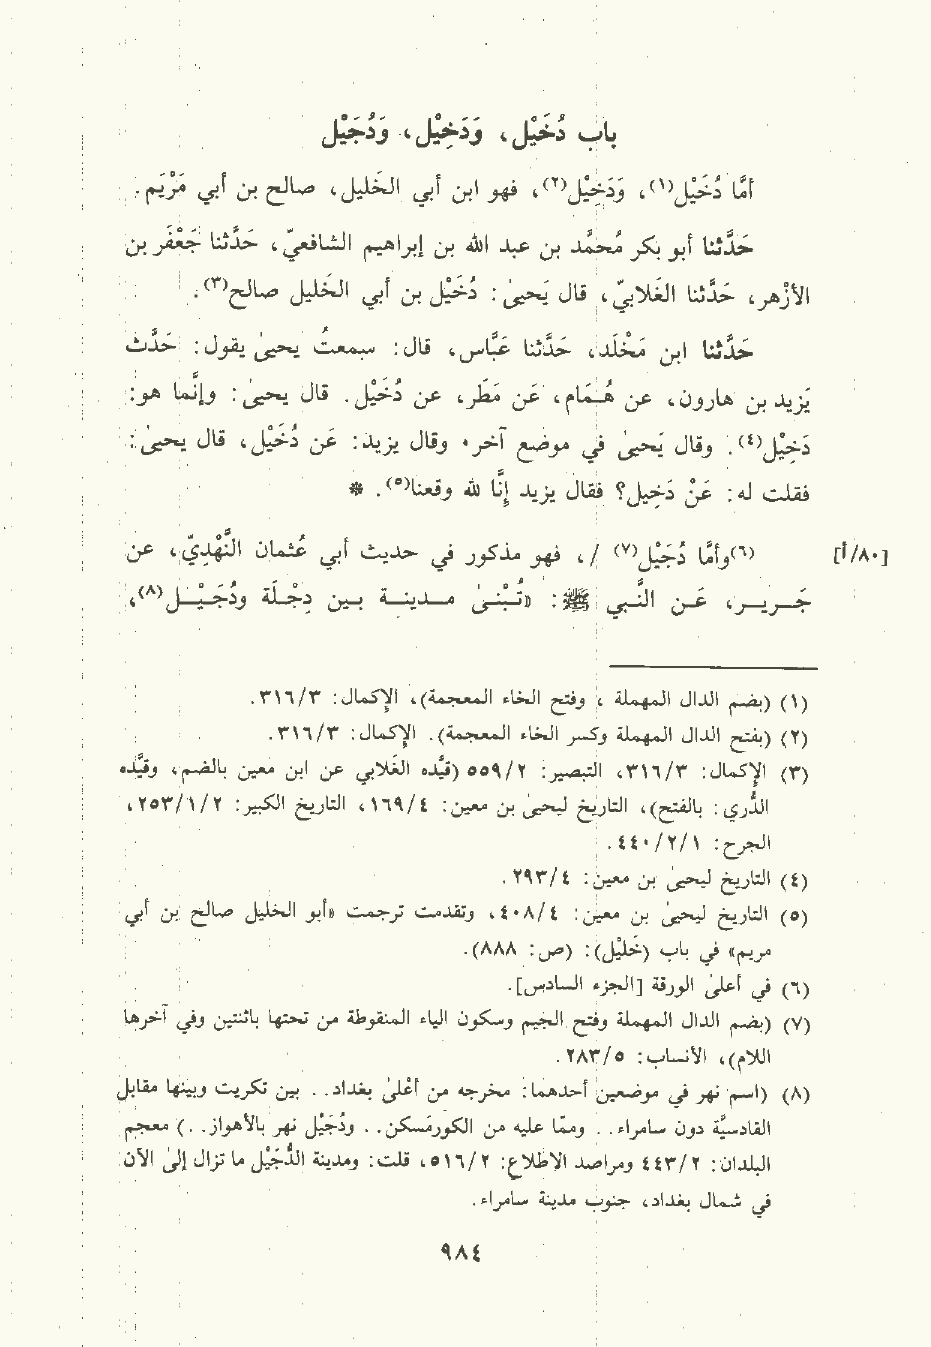 باب دُخَيْل، وَدَخِيْل، وَدُجَيْل
أمَّا دُخَيْل(١)، وَدَخِيْل(٢)، فهو ابن أبي الخَليل، صالح بن أبي مَرْيَم.
حَدَّثنا أبو بكر مُحمَّد بن عبد الله بن إبراهيم الشافعيّ، حَدَّثنا جَعْفَر بن
الأزْهر، حَدَّثنا الغَلابيّ، قال يَحيىٰ: دُخَيْل بن أبي الخَليل صالح(٣).
حَدَّثنا ابن مَخْلَد، حَدَّثنا عَبَّاس، قال: سمعتُ يحيىٰ يقول: حَدَّث
يَزيد بن هارون، عن هُمَام، عَن مَطَر، عن دُخَيْل. قال يحيىٰ: وإنَّما هو:
دَخِيْل(٤). وقال يَحيىٰ في موضع آخر، وقال يزيد: عَن دُخَيْل، قال يحيىٰ:
فقلت له: عَنْ دَخِيل؟ فقال يزيد إنَّا لله وقعنا(٥). *
[٨٠/أ] (٦)وأمَّا دُجَيْل(٧) / ، فهو مذكور في حديث أبي عُثمان النَّهْديّ، عن
جَـريـر، عَـن النَّبي ﷺ: «تُبْنىٰ مـدينـة بـين دِجْـلَة ودُجَـيْـل(٨)،
(١) (بضم الدال المهملة ، وفتح الخاء المعجمة)، الإكمال: ٣١٦/٣.
(٢) (بفتح الدال المهملة وكسر الخاء المعجمة). الإكمال: ٣١٦/٣.
(٣) الإكمال: ٣١٦/٣، التبصير: ٥٥٩/٢ (قيَّده الغَلابي عن ابن معين بالضم، وقيَّده
الدُّري: بالفتح)، التاريخ ليحيىٰ بن معين: ١٦٩/٤، التاريخ الكبير: ٢٥٣/١/٢،
الجرح: ٤٤٠/٢/١.
(٤) التاريخ ليحيىٰ بن معين: ٢٩٣/٤.
(٥) التاريخ ليحيىٰ بن معين: ٤٠٨/٤، وتقدمت ترجمت «أبو الخليل صالح بن أبي
مريم» في باب (خَليْل): (ص: ٨٨٨).
(٦) في أعلىٰ الورقة [الجزء السادس].
(٧) (بضم الدال المهملة وفتح الجيم وسكون الياء المنقوطة من تحتها باثنتين وفي آخرها
اللام)، الأنساب: ٢٨٣/٥.
(٨) (اسم نهر في موضعين أحدهما: مخرجه من أعْلىٰ بغداد. . بين تكريت وبينها مقابل
القادسيَّة دون سامراء. . وممّا عليه من الكورمَسكن. . ودُجَيْل نهر بالأهواز. .) معجم
البلدان: ٤٤٣/٢ ومراصد الاطلاع: ٥١٦/٢، قلت: ومدينة الدُّجَيْل ما تزال إلىٰ الآن
في شمال بغداد، جنوب مدينة سامراء.
٩٨٤